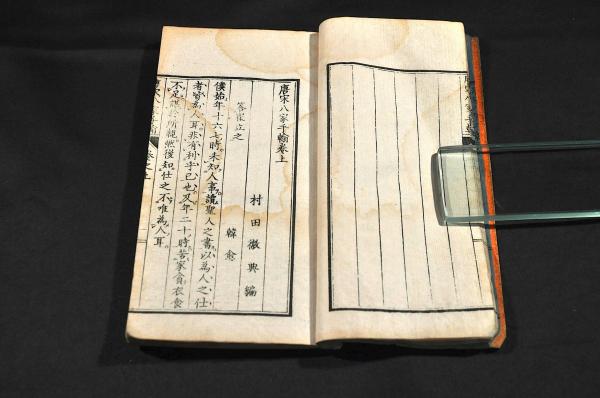 唐宋八家千輪巻上
村田徽典編
答崔立之
韓愈
僕始年十六七時未知人事讀聖人之書以為人之仕
者皆為人耳非有利乎己也及年二十時苦家貧衣食
不足謀於所親然後知仕之不唯為人耳